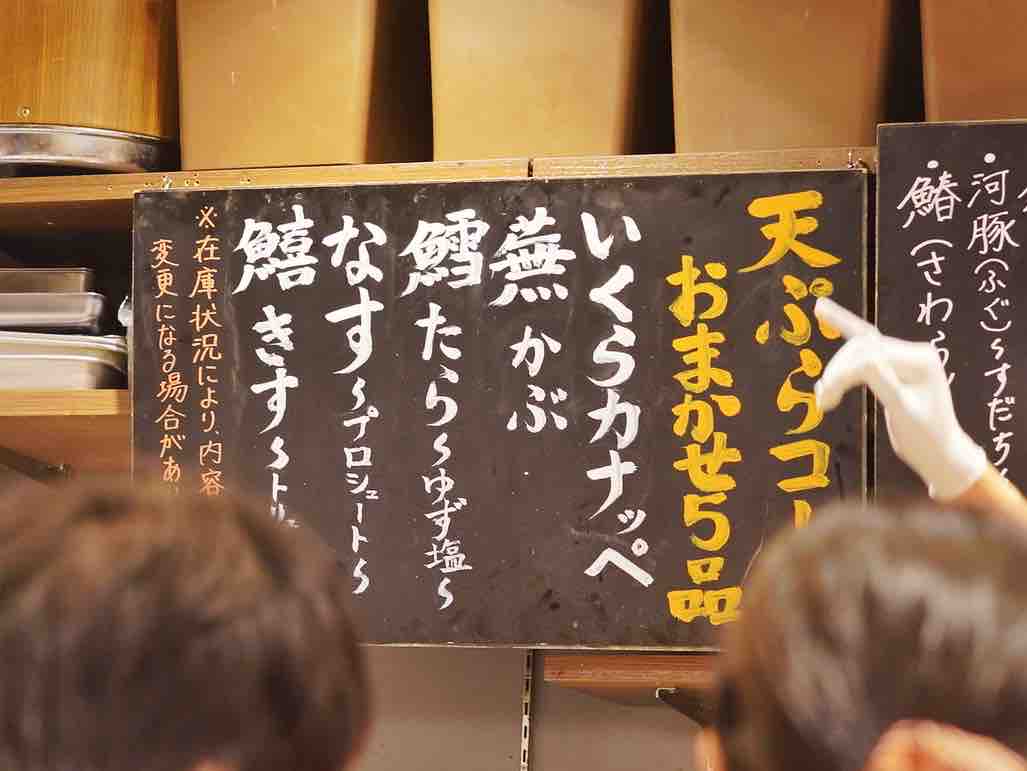 ・河豚(ふぐ)〜すだち
・鰆(さわら
天ぷらコー
おまかせ5品
いくらカナッペ
蕪かぶ
鱈たら〜ゆず塩〜
なす〜プロシュート〜
鱚きす〜トリ
※在庫状況により、内容
変更になる場合があ